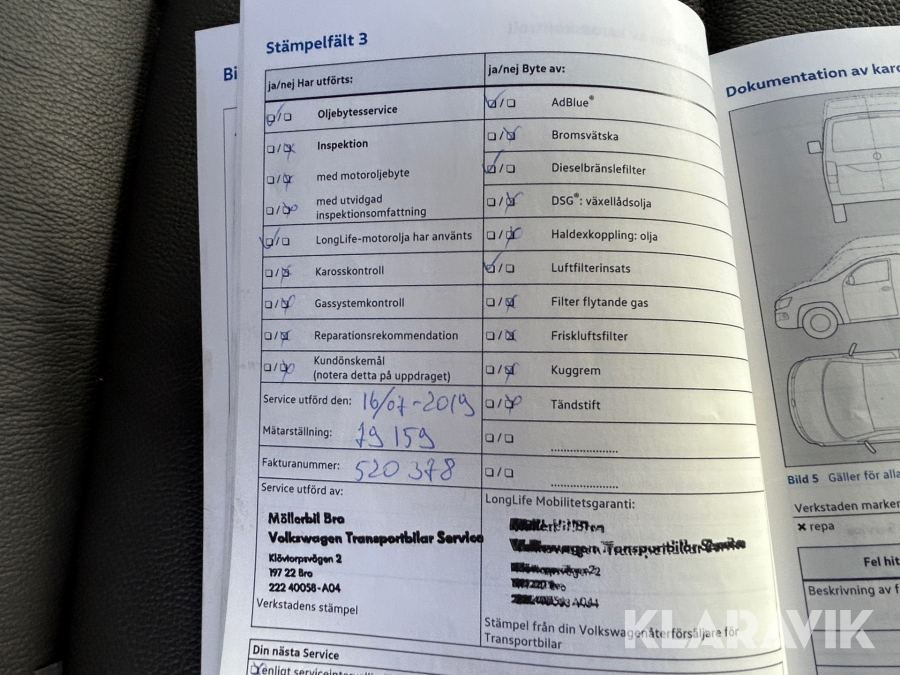 Stämpelfält 3
ja/nej Har utförts:
Oljebytesservice
Inspektion
med motoroljebyte
med utvidgad
inspektionsomfattning
LongLife-motorolja har använts
Karosskontroll
Gassystemkontroll
Reparationsrekommendation
Kundönskemål
(notera detta på uppdraget)
Service utförd den: 16/07-2019
Mätarställning: 79 159
Fakturanummer: 520 378
Service utförd av:
Möllerbil Bro
Volkswagen Transportbilar Service
Klövtorpsvägen 2
197 22 Bro
222 40058-A04
Verkstadens stämpel
ja/nej Byte av:
AdBlue®
Bromsvätska
Dieselbränslefilter
DSG®: växellådsolja
Haldexkoppling: olja
Luftfilterinsats
Filter flytande gas
Friskluftsfilter
Kuggrem
Tändstift
LongLife Mobilitetsgaranti:
Volkswagen Transportbilar Service
Stämpel från din Volkswagenåterförsäljare för
Transportbilar
Din nästa Service
enligt
Bi
Dokumentation av karo
Bild 5 Gäller för alla
Verkstaden marker
x repa
Fel hit
Beskrivning av f
KLARAVIK